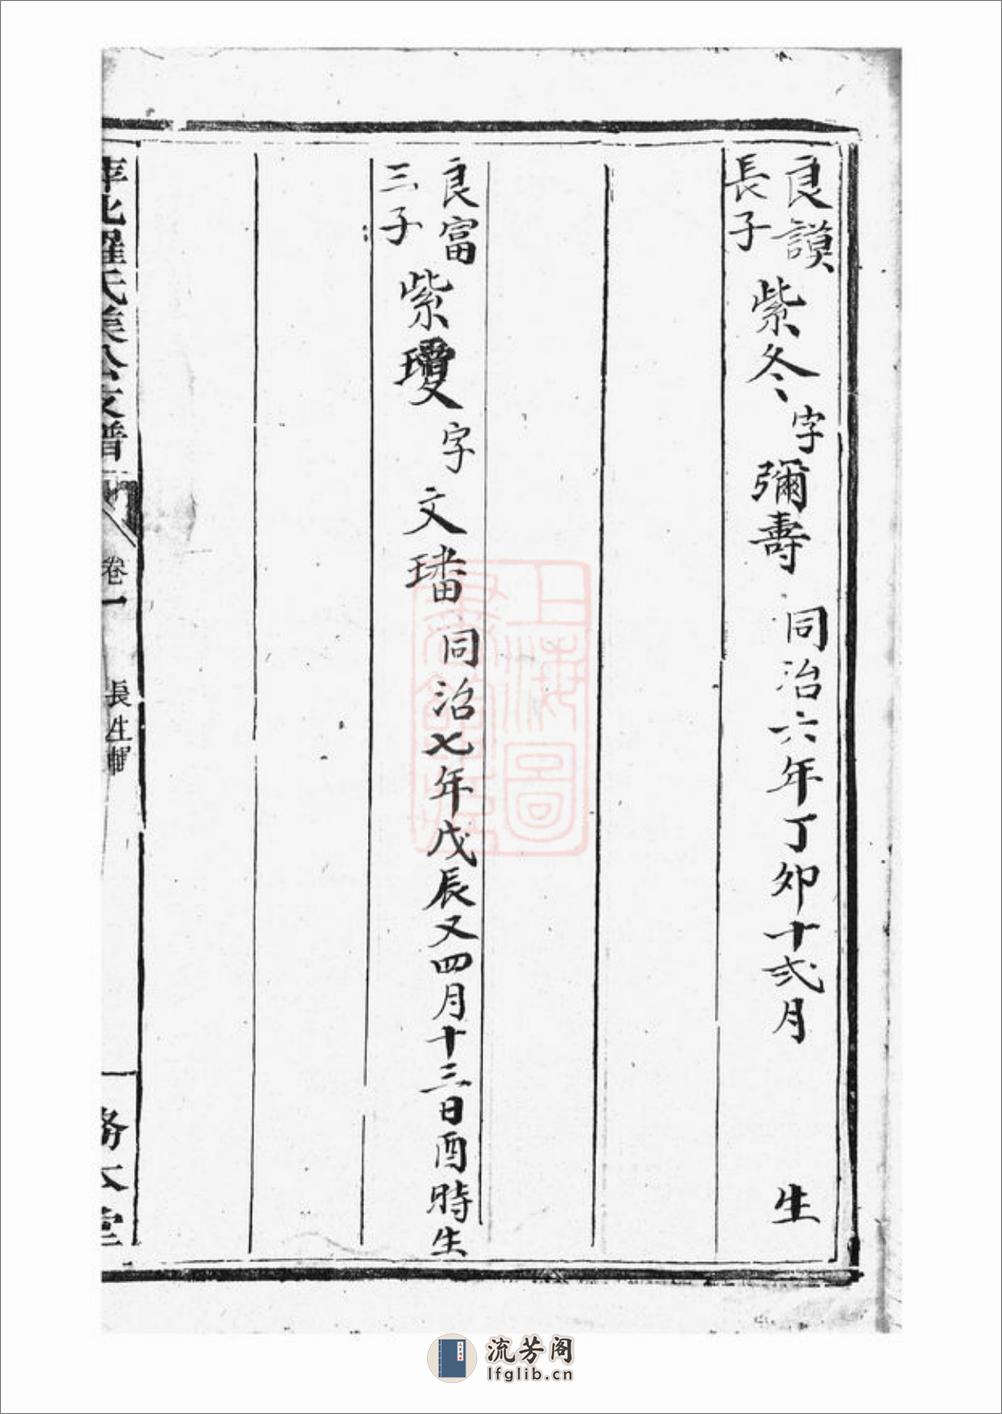 良謨
長子
紫冬字彌壽 同治六年丁卯十弍月 生
良富
三子
紫瓊字文璠 同治七年戊辰又四月十三日酉時生
萍北羅氏美公支譜
卷一
長生
務本堂
上海圖書館藏
流芳阁
lfglib.cn